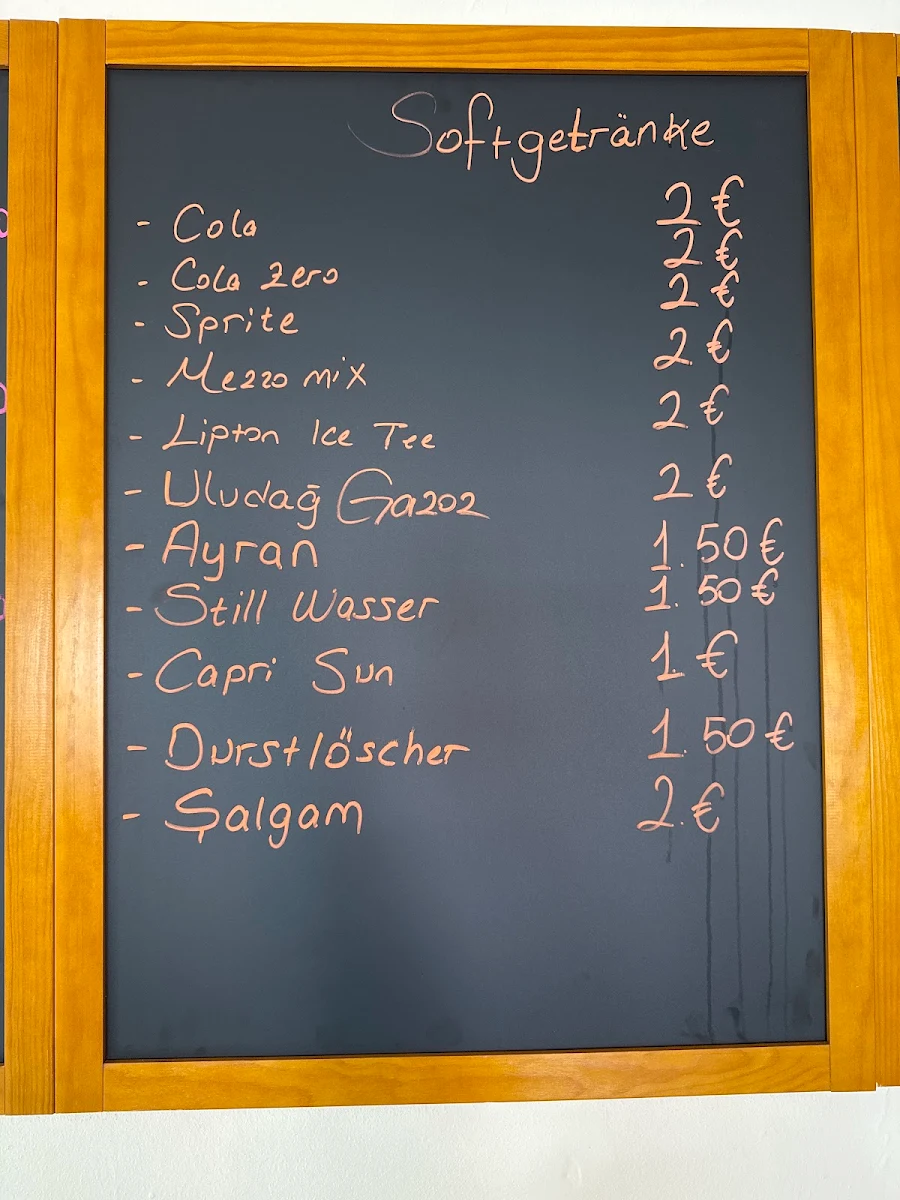 Softgetränke
- Cola 2 €
- Cola Zero 2 €
- Sprite 2 €
- Mezzo mix 2 €
- Lipton Ice Tee 2 €
- Uludağ Gazoz 2 €
- Ayran 1.50 €
- Still Wasser 1.50 €
- Capri Sun 1 €
- Durstlöscher 1.50 €
- Şalgam 2.€